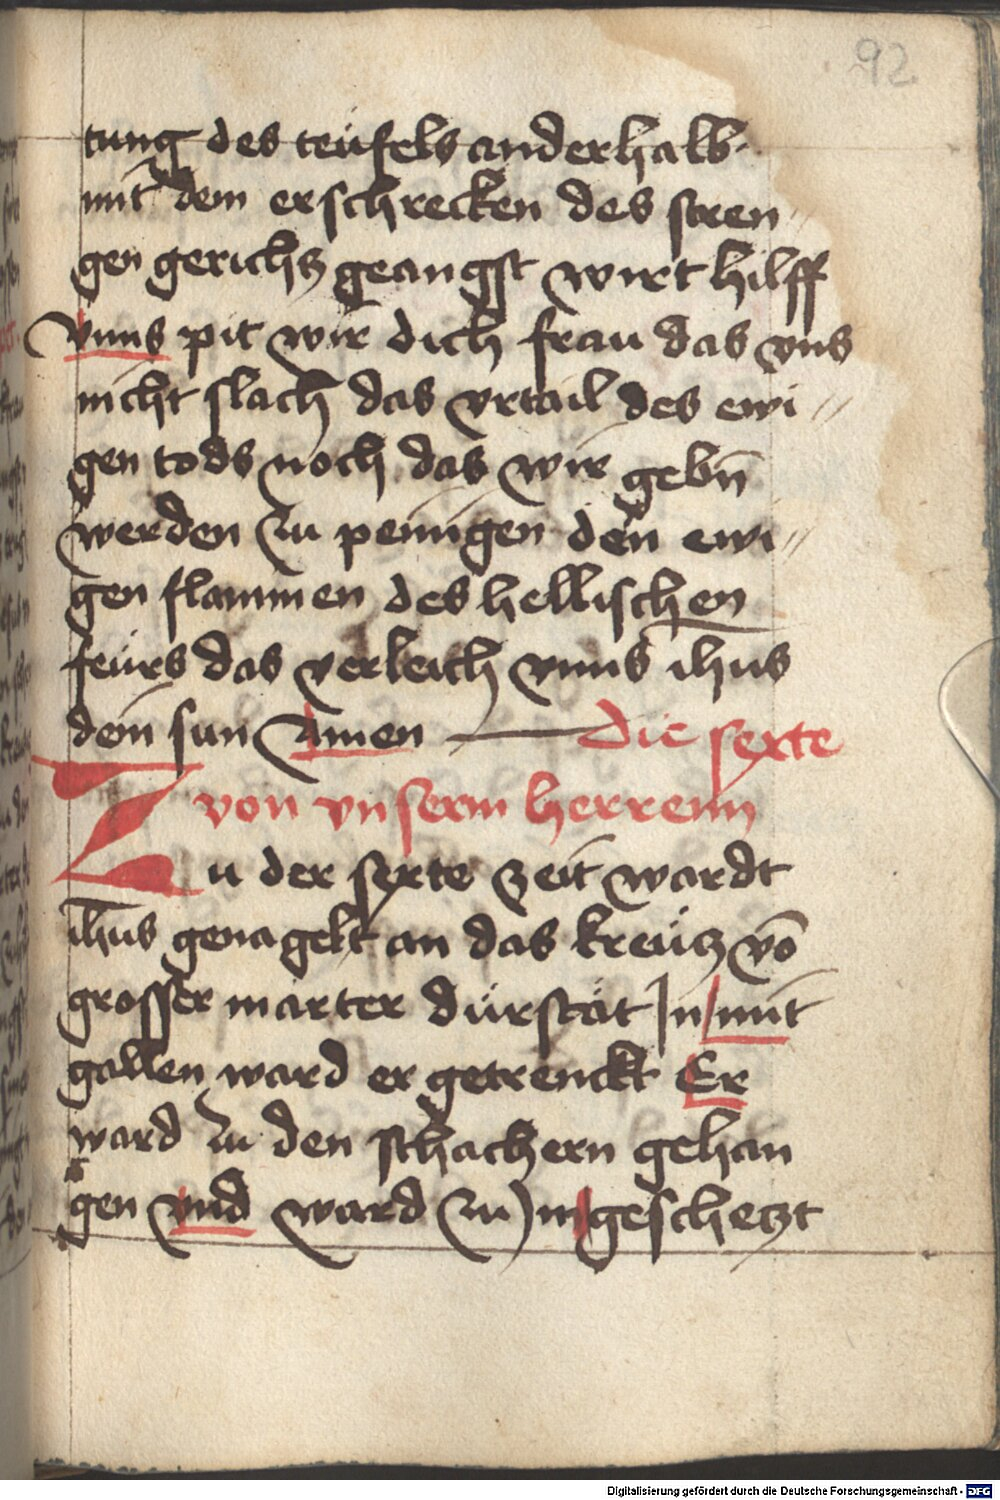 92
tung des teüfels anderhalb
mit dem erschrecken des stren〃
gen gerichtz geangst wirt hilff
vnns pit wir dich frau das vns
nicht slach das vrtail des ewi〃
gen tods noch das wir gebn̄
werden zu peinigen den ewi〃
gen flammen des hellischen
feürs das verleich vnns ihus
dein sun Amen die sexte
von vnserm herrenn
Zu der sexte zeit wardt
ihus genagelt an das kreütz vō
grosser marter dürstät in mit
gallen ward er getrenckt Er
ward zu den schachern gehan
gen vnd ward zu in geschetzt
Digitalisierung gefördert durch die Deutsche Forschungsgemeinschaft - DFG